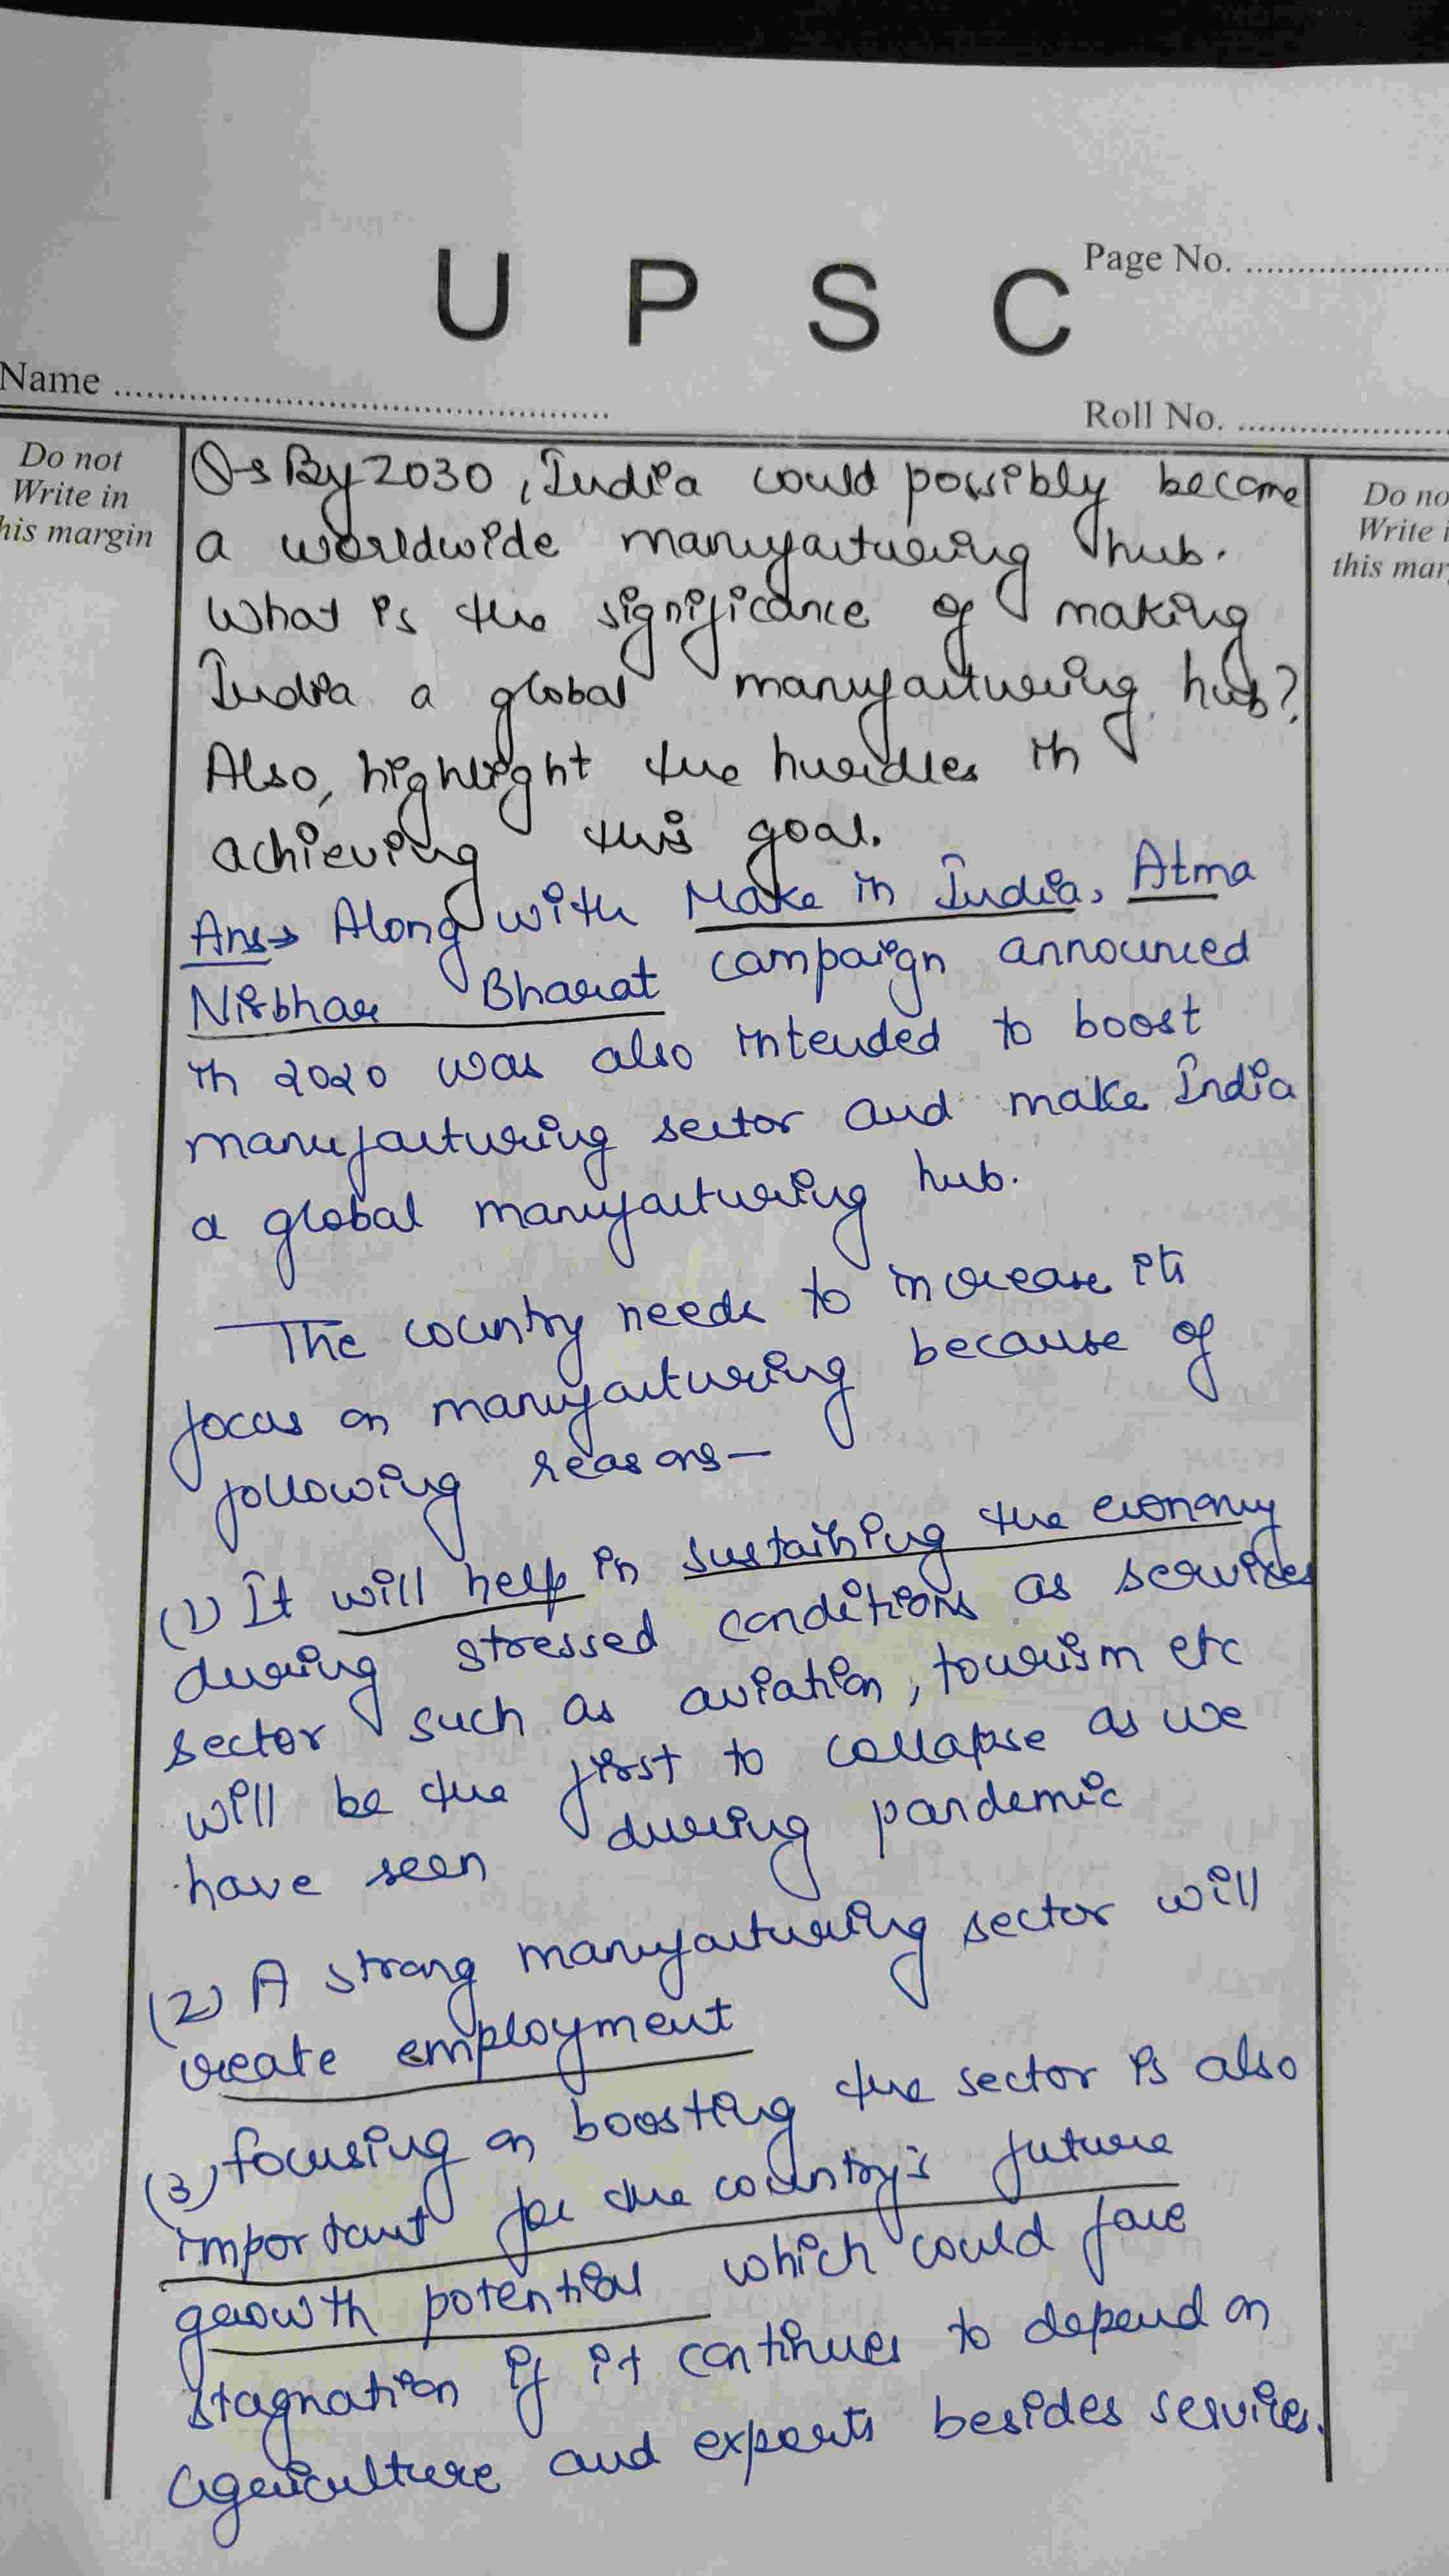 Page No. ....................
U P S C
Name ..................................................
Roll No. ......................
Do not
Write in
his margin
Do no
Write i
this mar
Q→ By 2030, India could possibly become
a worldwide manufacturing hub.
What is the significance of making
India a global manufacturing hub?
Also, highlight the hurdles in
achieving this goal.
Ans→ Along with Make in India, Atma
Nirbhar Bharat campaign announced
in 2020 was also intended to boost
manufacturing sector and make India
a global manufacturing hub.
The country needs to increase its
focus on manufacturing because of
following reasons—
(1) It will help in sustaining the economy
during stressed conditions as services
sector such as aviation, tourism etc
will be the first to collapse as we
have seen during pandemic
(2) A strong manufacturing sector will
create employment
(3) focusing on boosting the sector is also
important for the country's future
growth potential which could face
stagnation if it continues to depend on
agriculture and exports besides services.